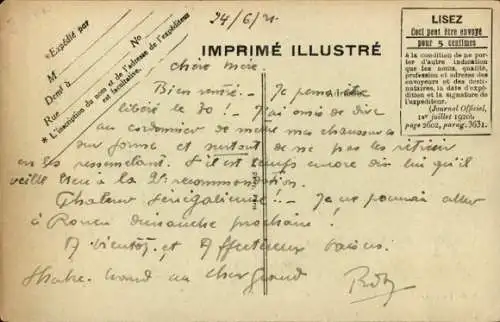 24/6/21
IMPRIMÉ ILLUSTRÉ
* Expédié par
M
No
Demt à
Rue
* L'inscription du nom et de l'adresse de l'expéditeur
est facultative.
LISEZ
Ceci peut être envoyé
pour 5 centimes
à la condition de ne porter d'autre indication
que les noms, qualité,
profession et adresse des
envoyeurs et des destinataires, la date d'expédition
et la signature de
l'expéditeur.
(Journal Officiel,
1er juillet 1920,
page 2602, paragr. 3631.
Chère Mère.
Bien rentré. - Je pense être
libéré le 30. - J'ai omis de dire
au cordonnier de mettre mes chaussures
sur forme et surtout de ne pas les rétrécir
en les ressemelant. S'il est temps encore dis lui qu'il
veille bien à la 2e recommandation.
Chaleur Sénégalienne. - Je ne pourrai aller
à Rouen dimanche prochain.
A bientôt et Affectueux baisers.
grand au cher